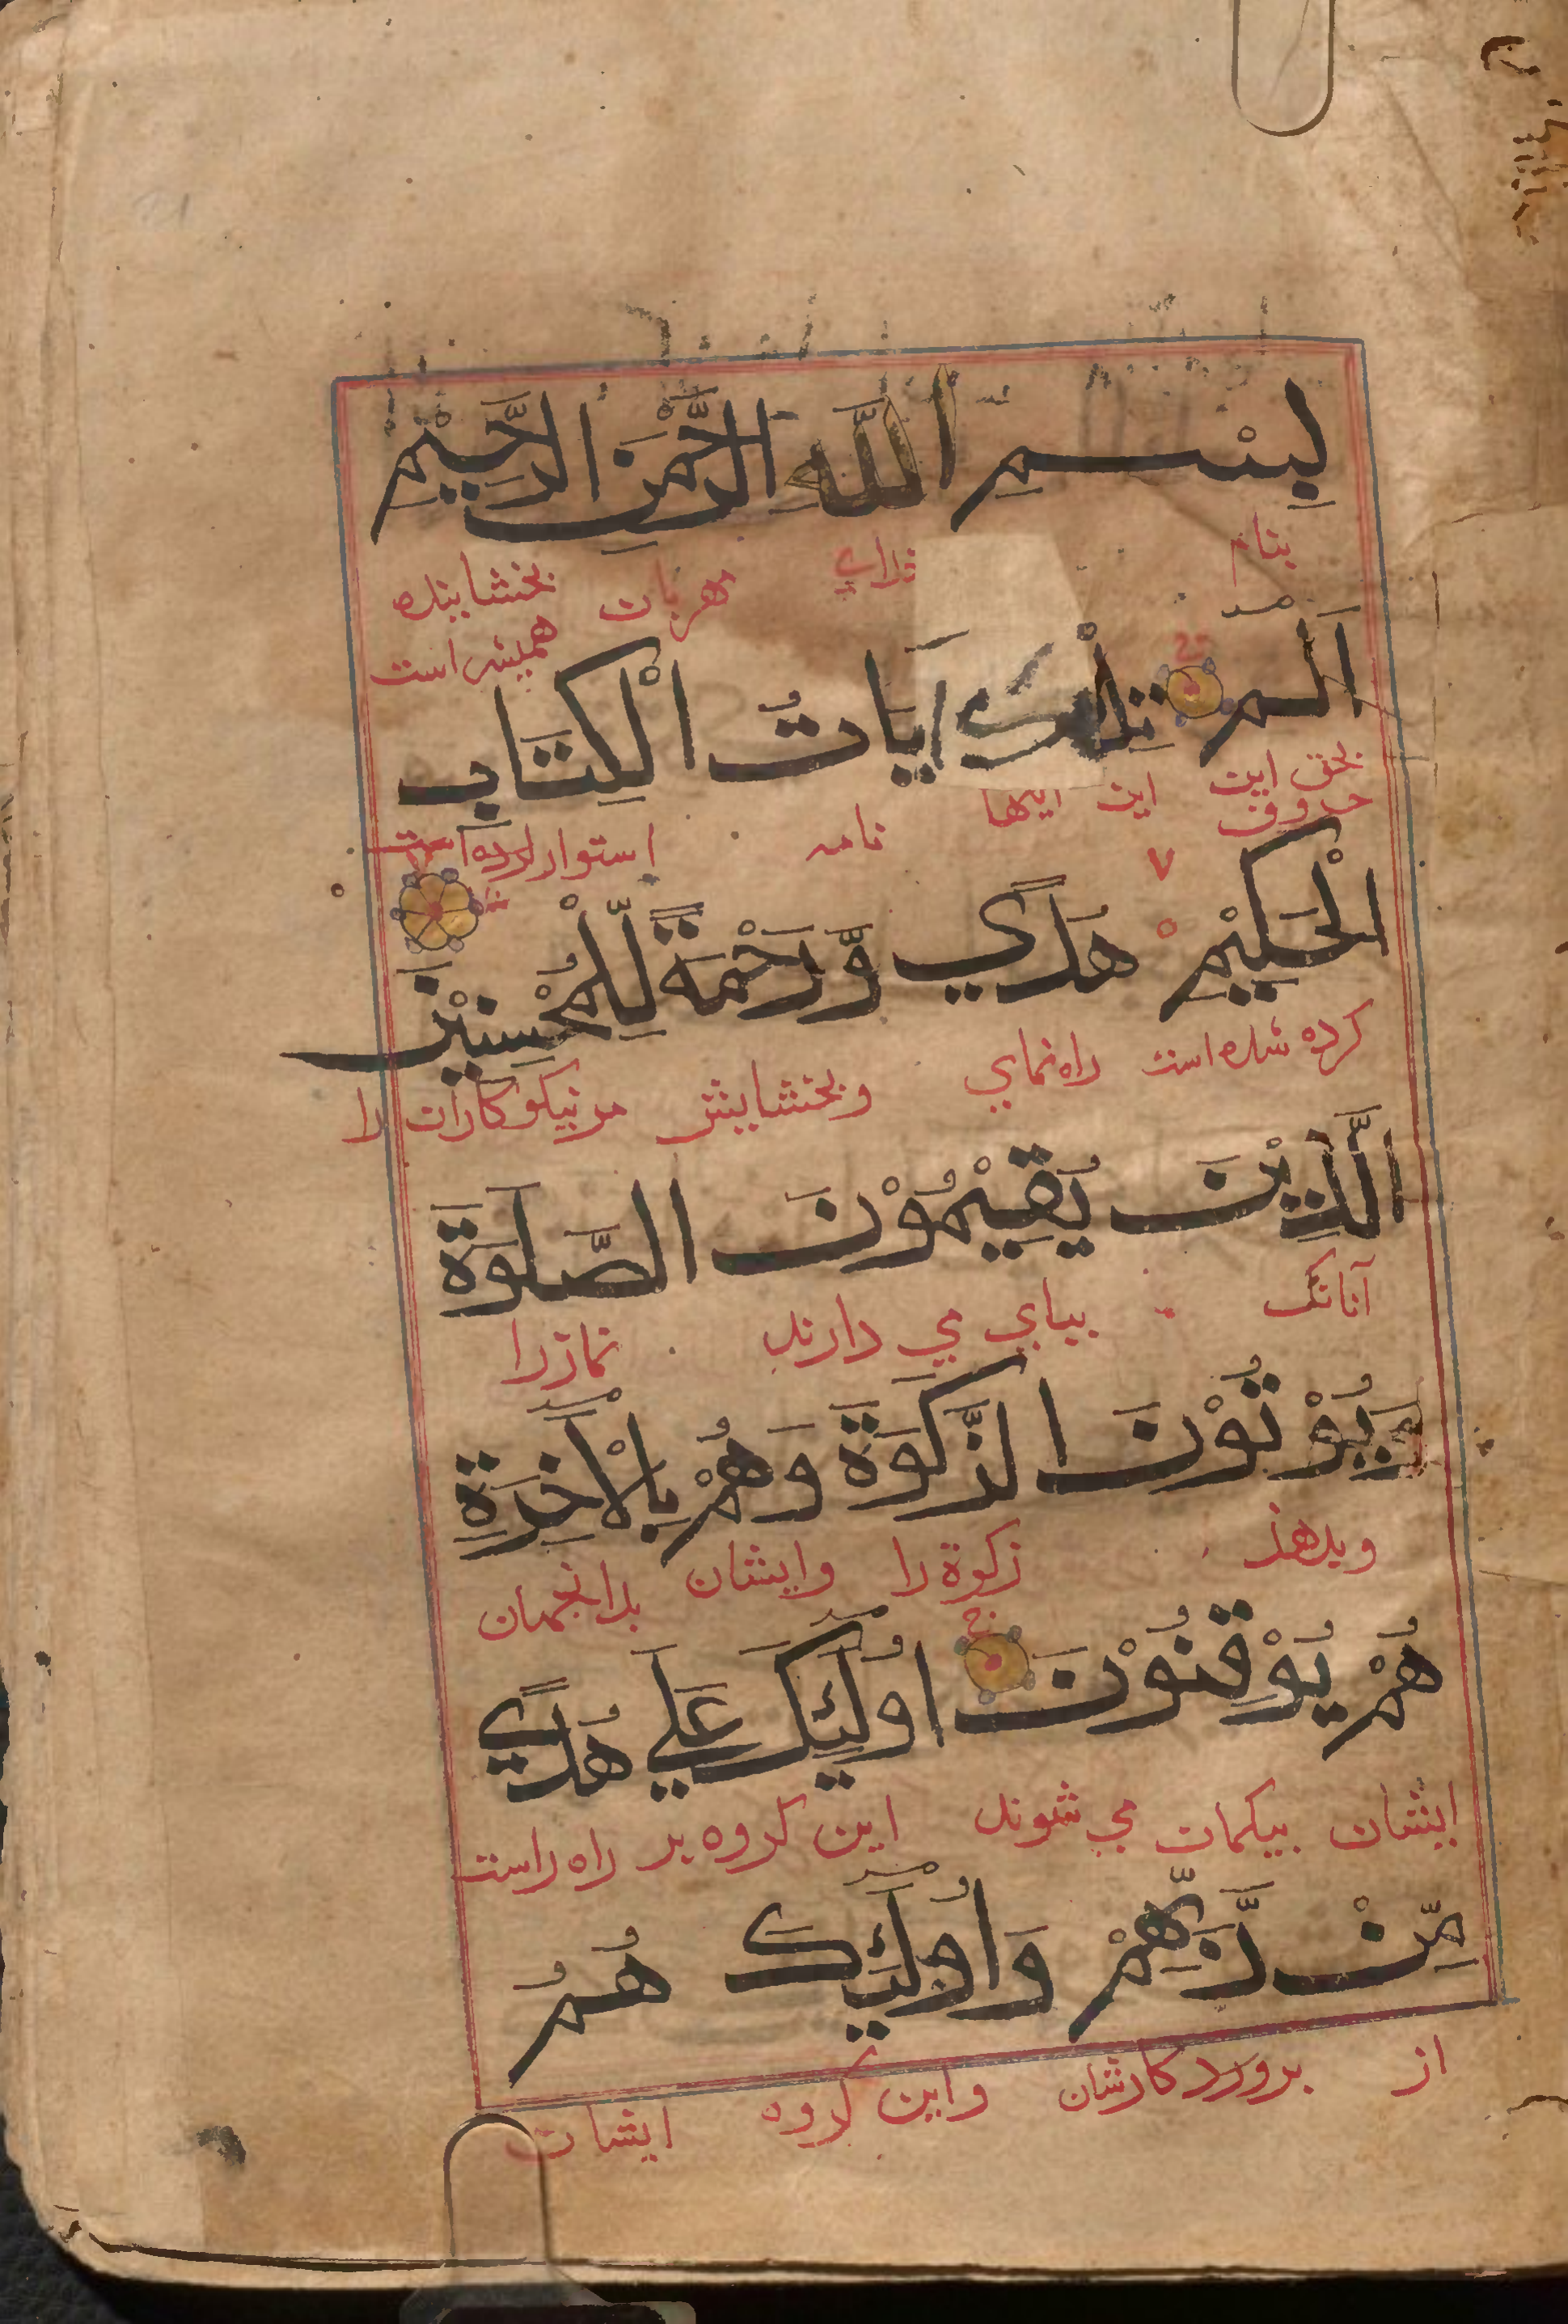 بِسْمِ اللَّهِ الرَّحْمٰنِ الرَّحِيْمِ
بنام خداي مهربان بخشاينده
هميشه است
الٓمٓ تِلْكَ اٰيَاتُ الْكِتَابِ
بحق اين اين ايتها نامه استوار كرده است
حروف
الْحَكِيْمِ هُدًي وَّرَحْمَةً لِّلْمُحْسِنِيْنَ
كرده شده است راه نماي وبخشايش مر نيكوكاران را
الَّذِيْنَ يُقِيْمُوْنَ الصَّلَوٰةَ
آنانك بپاي مي دارند نماز را
وَيُوْتُوْنَ الزَّكَوٰةَ وَهُمْ بِالْاٰخِرَةِ
وبدهند زكوة را وايشان بدانجهان
هُمْ يُوْقِنُوْنَ اُولٰٓئِكَ عَلَي هُدًي
ايشان بيكمان مي شوند اين كروه بر راه راست
مِّنْ رَّبِّهِمْ وَاُولٰٓئِكَ هُمُ
از پروردكارشان واين كروه ايشان